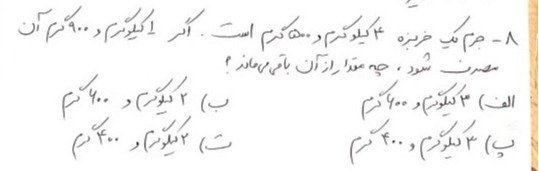 ۸- جرم یک خربزه ۴ کیلوگرم و ۵۰۰ گرم است. اگر ۱ کیلوگرم و ۹۰۰ گرم آن
مصرف شود، چه مقدار از آن باقی می‌ماند؟
الف) ۳ کیلوگرم و ۶۰۰ گرم ب) ۲ کیلوگرم و ۶۰۰ گرم
پ) ۳ کیلوگرم و ۴۰۰ گرم ت) ۲ کیلوگرم و ۴۰۰ گرم